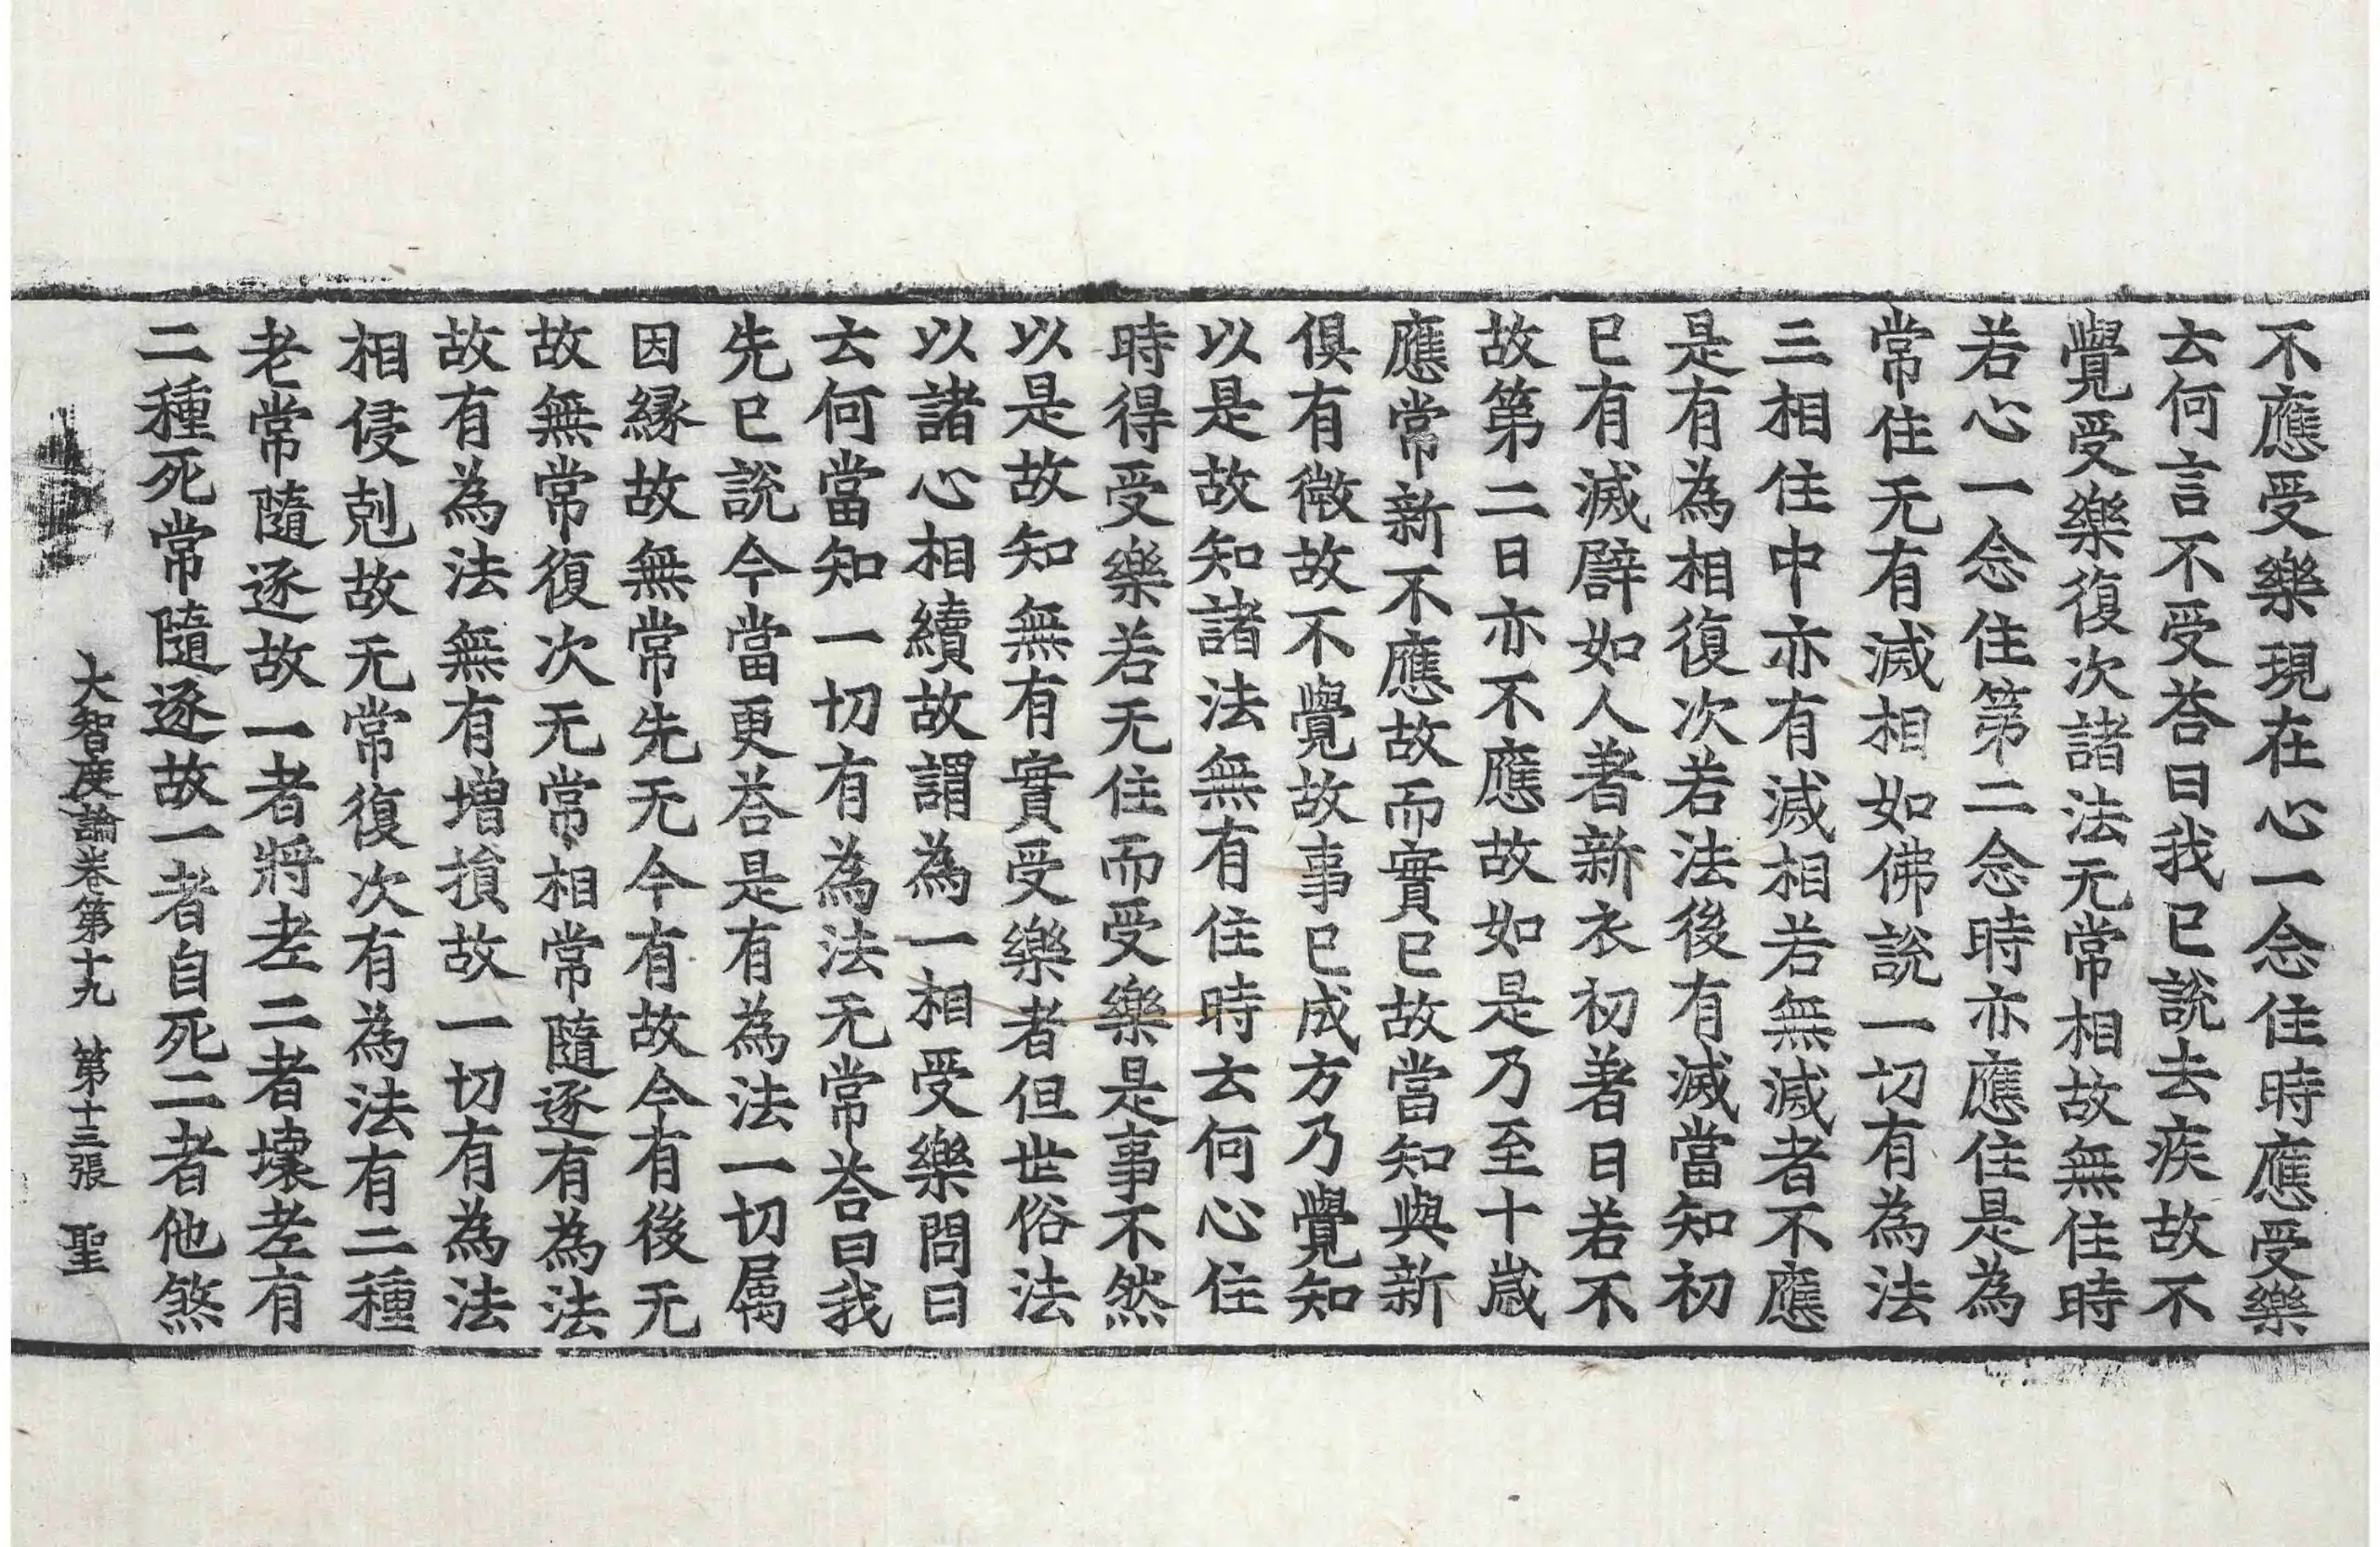 不應受樂現在心一念住時應受樂
去何言不受荅曰我已說去疾故不
覺受樂復次諸法无常相故無住時
若心一念住第二念時亦應住是為
常住无有滅相如佛說一切有為法
三相住中亦有滅相若無滅者不應
是有為相復次若法後有滅當知初
已有滅譬如人著新衣初著日若不
故第二日亦不應故如是乃至十歲
應常新不應故而實已故當知與新
俱有微故不覺故事已成方乃覺知
以是故知諸法無有住時云何心住
時得受樂若无住而受樂是事不然
以是故知無有實受樂者但世俗法
以諸心相續故謂為一相受樂問曰
云何當知一切有為法无常荅曰我
先已說今當更荅是有為法一切屬
因緣故無常先无今有故今有後无
故無常復次无常相常隨逐有為法
故有為法無有增損故一切有為法
相侵剋故无常復次有為法有二種
老常隨逐故一者將老二者壞老有
二種死常隨逐故一者自死二者他煞
大智度論卷第十九 第十三張 聖